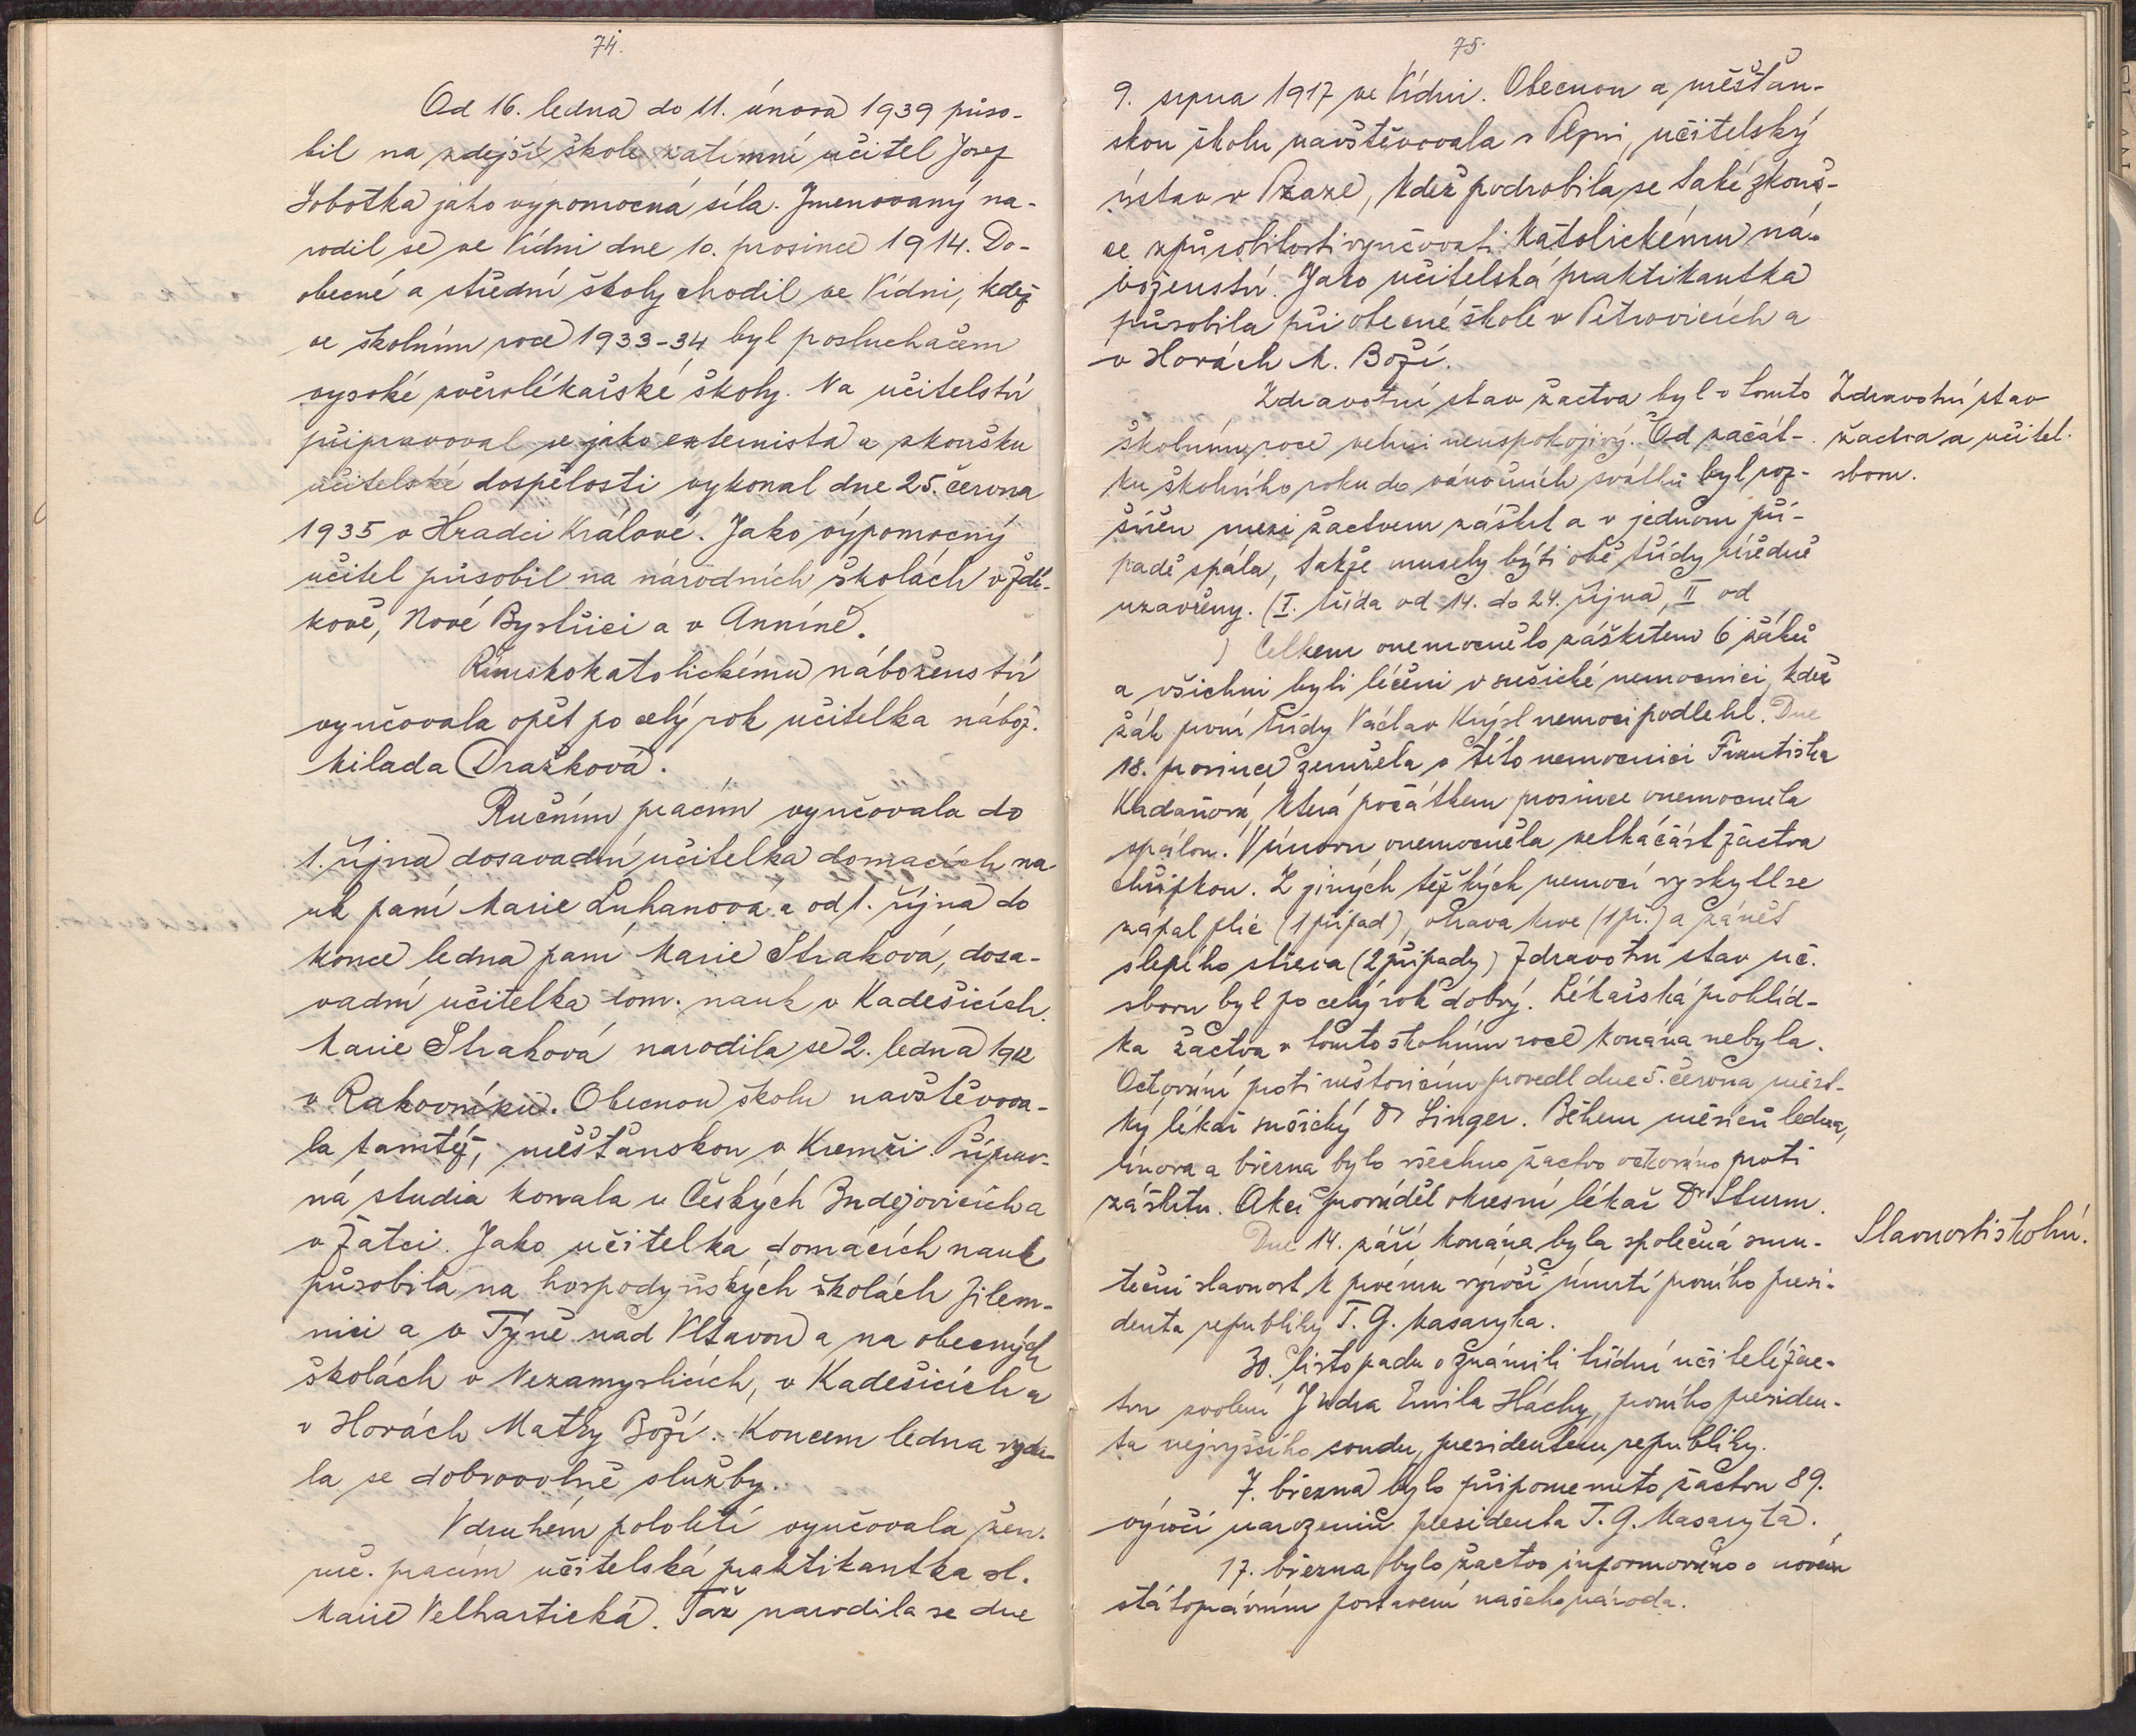 74.
Od 16. ledna do 11. února 1939 půso-
bil na zdejší škole zatimní učitel Josef
Sobotka jako výpomocná síla. Jmenovaný na-
rodil se ve Vídni dne 10. prosince 1914. Do
obecné a střední školy chodil ve Vídni, kdež
ve školním roce 1933-34 byl posluchačem
vysoké zvěrolékařské školy. Na učitelství
připravoval se jako externista a zkoušku
učitelské dospělosti vykonal dne 25. června
1935 v Hradci Králové. Jako výpomocný
učitel působil na národních školách v Zdí-
kově, Nové Bystřici a v Anníně.
Římskokatolickému náboženství
vyučovala opět po celý rok učitelka nábož.
Milada Dražková.
Ručním pracím vyučovala do
1. října dosavadní učitelka domacích na
uk paní Marie Luhanová a od 1. října do
konce ledna paní Marie Straková, dosa-
vadní učitelka dom. nauk v Kadešicích.
Marie Straková narodila se 2. ledna 1912
v Rakovníku. Obecnou školu navštěvova-
la tamtéž, měšťanskou v Kremži. Příprav-
ná studia konala v Českých Budějovicích a
v Žatci. Jako učitelka domácích nauk
působila na hospodyňských školách Jilem-
nici a v Týně nad Vltavou a na obecných
školách v Nezamyslicích, v Kadešicích a
v Horách Matky Boží. Koncem ledna vzda-
la se dobrovolně služby.
V druhém pololetí vyučovala žen.
ruč. pracím učitelská praktikantka sl.
Marie Velhartická. Táž narodila se dne
75.
9. srpna 1917 ve Vídni. Obecnou a měšťan-
skou školu navštěvovala v Plzni, učitelský
ústav v Praze, kdež podrobila se také zkouš-
ce způsobilosti vyučovati katolickému ná-
boženství. Jako učitelská praktikantka
působila při obecné škole v Petrovicích a
v Horách M. Boží.
Zdravotní stav žactva byl v tomto
školním roce velmi neuspokojivý. Od začát-
ku školního roku do vánočních svátků byl roz-
šířen mezi žactvem záškrt a v jednom pří-
padě spála, takže musely býti obě třídy úředně
uzavřeny. (I. třída od 14. do 24. října, II od
) Celkem onemocnělo záškrtem 6 žáků
a všichni byli léčeni v sušické nemocnici, kdež
žák první třídy Václav Krýsl nemoci podlehl. Dne
18. prosince zemřela v této nemocnici Františka
Kadaňová, která počátkem prosince onemocněla
spálou. V únoru onemocněla velká část žactva
chřipkou. Z jiných těžkých nemocí vyskytl se
zápal plic (1 případ), otrava krve (1 př.) a zánět
slepého střeva (2 případy) Zdravotní stav uč.
sboru byl po celý rok dobrý. Lékařská prohlíd-
ka žactva v tomto školním roce konána nebyla.
Očkování proti neštovicím provedl dne 5. června měst-
ký lékař sušický Dr Singer. Během měsíců ledna,
února a března bylo všechno žactvo očkováno proti
záškrtu. Akci prováděl okresní lékař Dr Sturm.
Dne 14. září konána byla společná smu-
teční slavnost k prvému výročí úmrtí prvního presi-
denta republiky T. G. Masaryka.
30. listopadu oznámili třídní učitelé žac-
tvu zvolení JUdra Emila Háchy, prvního presiden-
ta nejvyššího soudu, presidentem republiky.
7. března bylo připomenuto žactvu 89.
výročí narozenin presidenta T. G. Masaryka.
17. března bylo žactvo informováno o novém
státoprávním postavení našeho národa.
Zdravotní stav
žactva a učitel.
sboru.
Slavnosti školní.